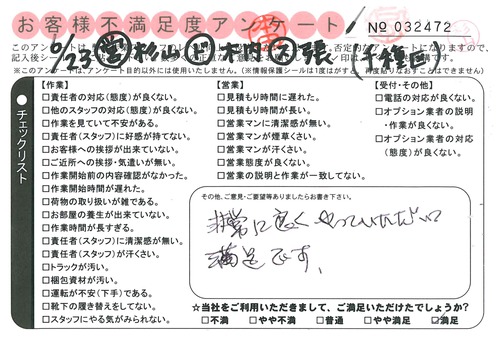 お客様不満足度アンケート
No 032472
6/23 営 杉山 ド 木内
(千種区)
※このアンケートは、アンケート目的以外には使用しておりません。
チェックリスト
【作業】
□責任者の対応(態度)が良くない。
□他のスタッフの対応(態度)が良くない。
□作業を見ていて不安がある。
□責任者(スタッフ)に好感が持てない。
□お客様への挨拶が出来ていない。
□ご近所への挨拶・気遣いが無い。
□作業開始前の内容確認がなかった。
□作業開始時間が遅れた。
□荷物の取り扱いが雑である。
□お部屋の養生が出来ていない。
□作業時間が長すぎる。
□責任者(スタッフ)に清潔感が無い。
□責任者(スタッフ)が汗くさい。
□トラックが汚い。
□梱包資材が汚い。
□運転が不安(下手)である。
□靴下の履き替えをしてない。
□スタッフにやる気がみられない。
【営業】
□見積もり時間に遅れた。
□見積もり時間が長い。
□営業マンに清潔感が無い。
□営業マンが煙草くさい。
□営業マンが汗くさい。
□営業態度が良くない。
□営業の説明と作業が一致してない。
【受付・その他】
□電話の対応が良くない。
□オプション業者の説明
・作業が良くない。
□オプション業者の対応
(態度)が良くない。
その他、ご意見・ご要望等ありましたらお書き下さい。
非常に良くやっていただいて
満足です。
☆当社をご利用いただきまして、ご満足いただけたでしょうか?
□不満 □やや不満 □普通 □やや満足 ☑満足